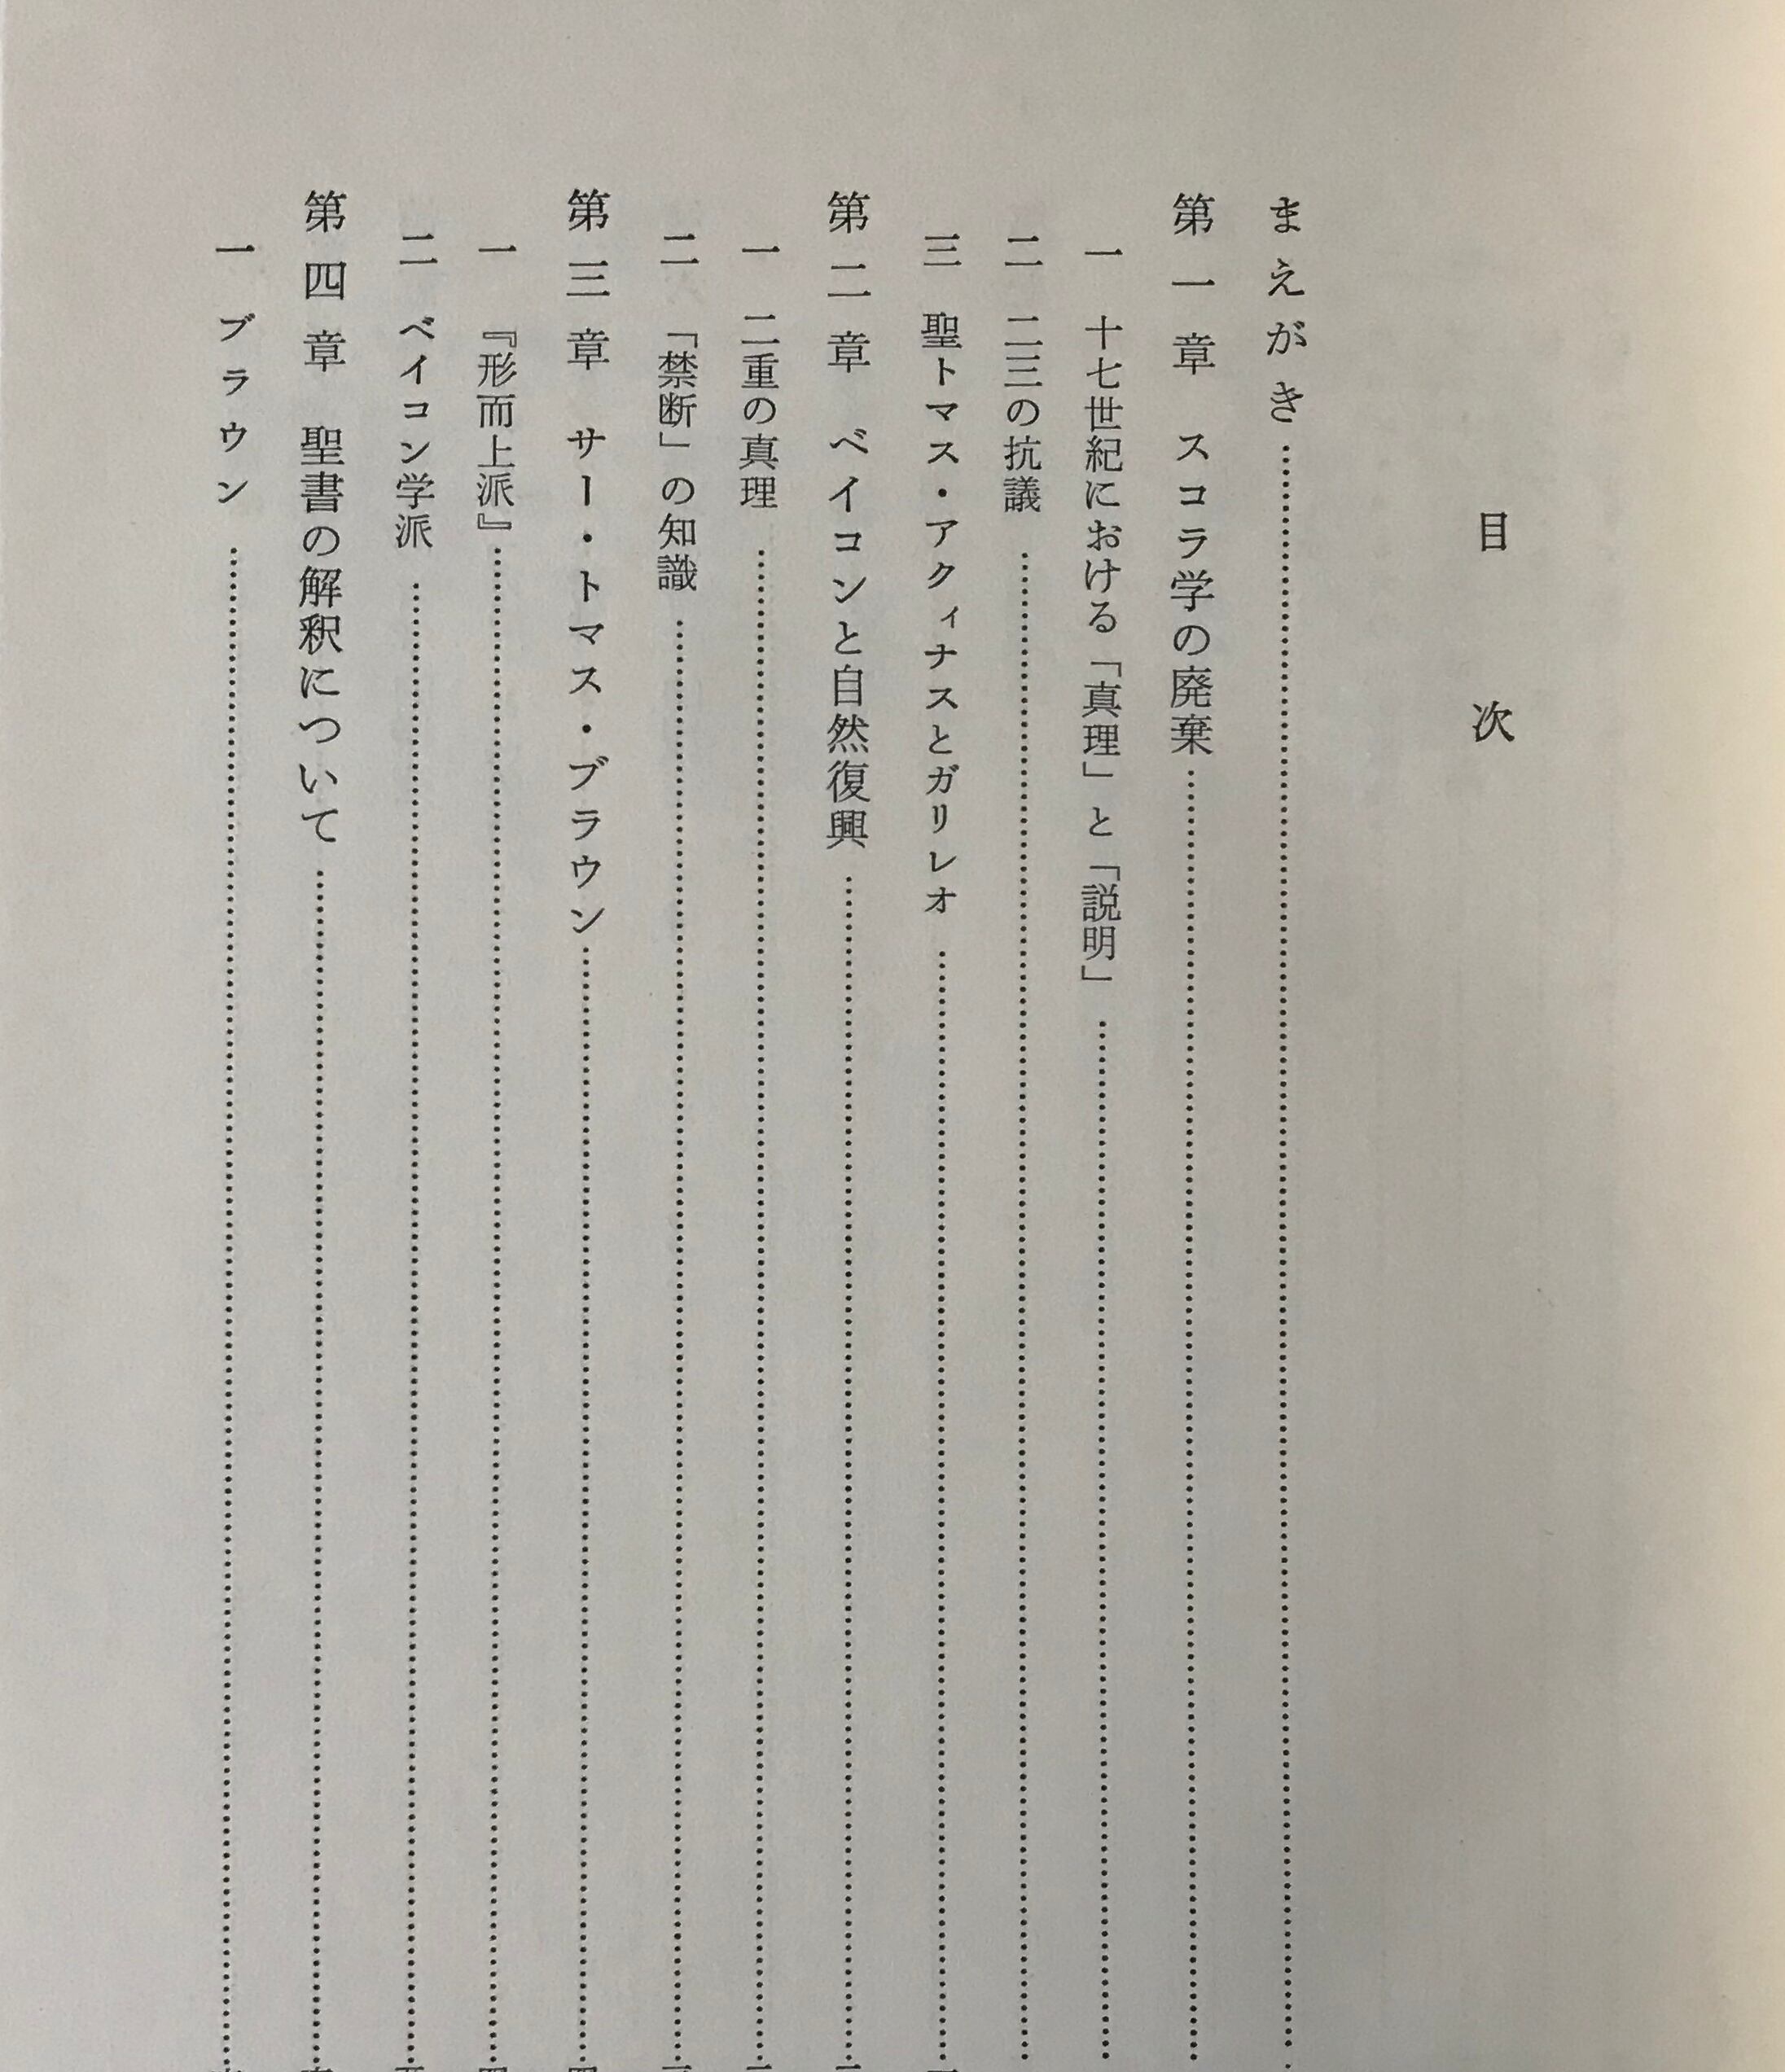 目次
まえがき
第一章 スコラ学の廃棄
一 十七世紀における「真理」と「説明」
二 二三の抗議
三 聖トマス・アクィナスとガリレオ
第二章 ベイコンと自然復興
一 二重の真理
二 「禁断」の知識
第三章 サー・トマス・ブラウン
一 『形而上派』
二 ベイコン学派
第四章 聖書の解釈について
一 ブラウン